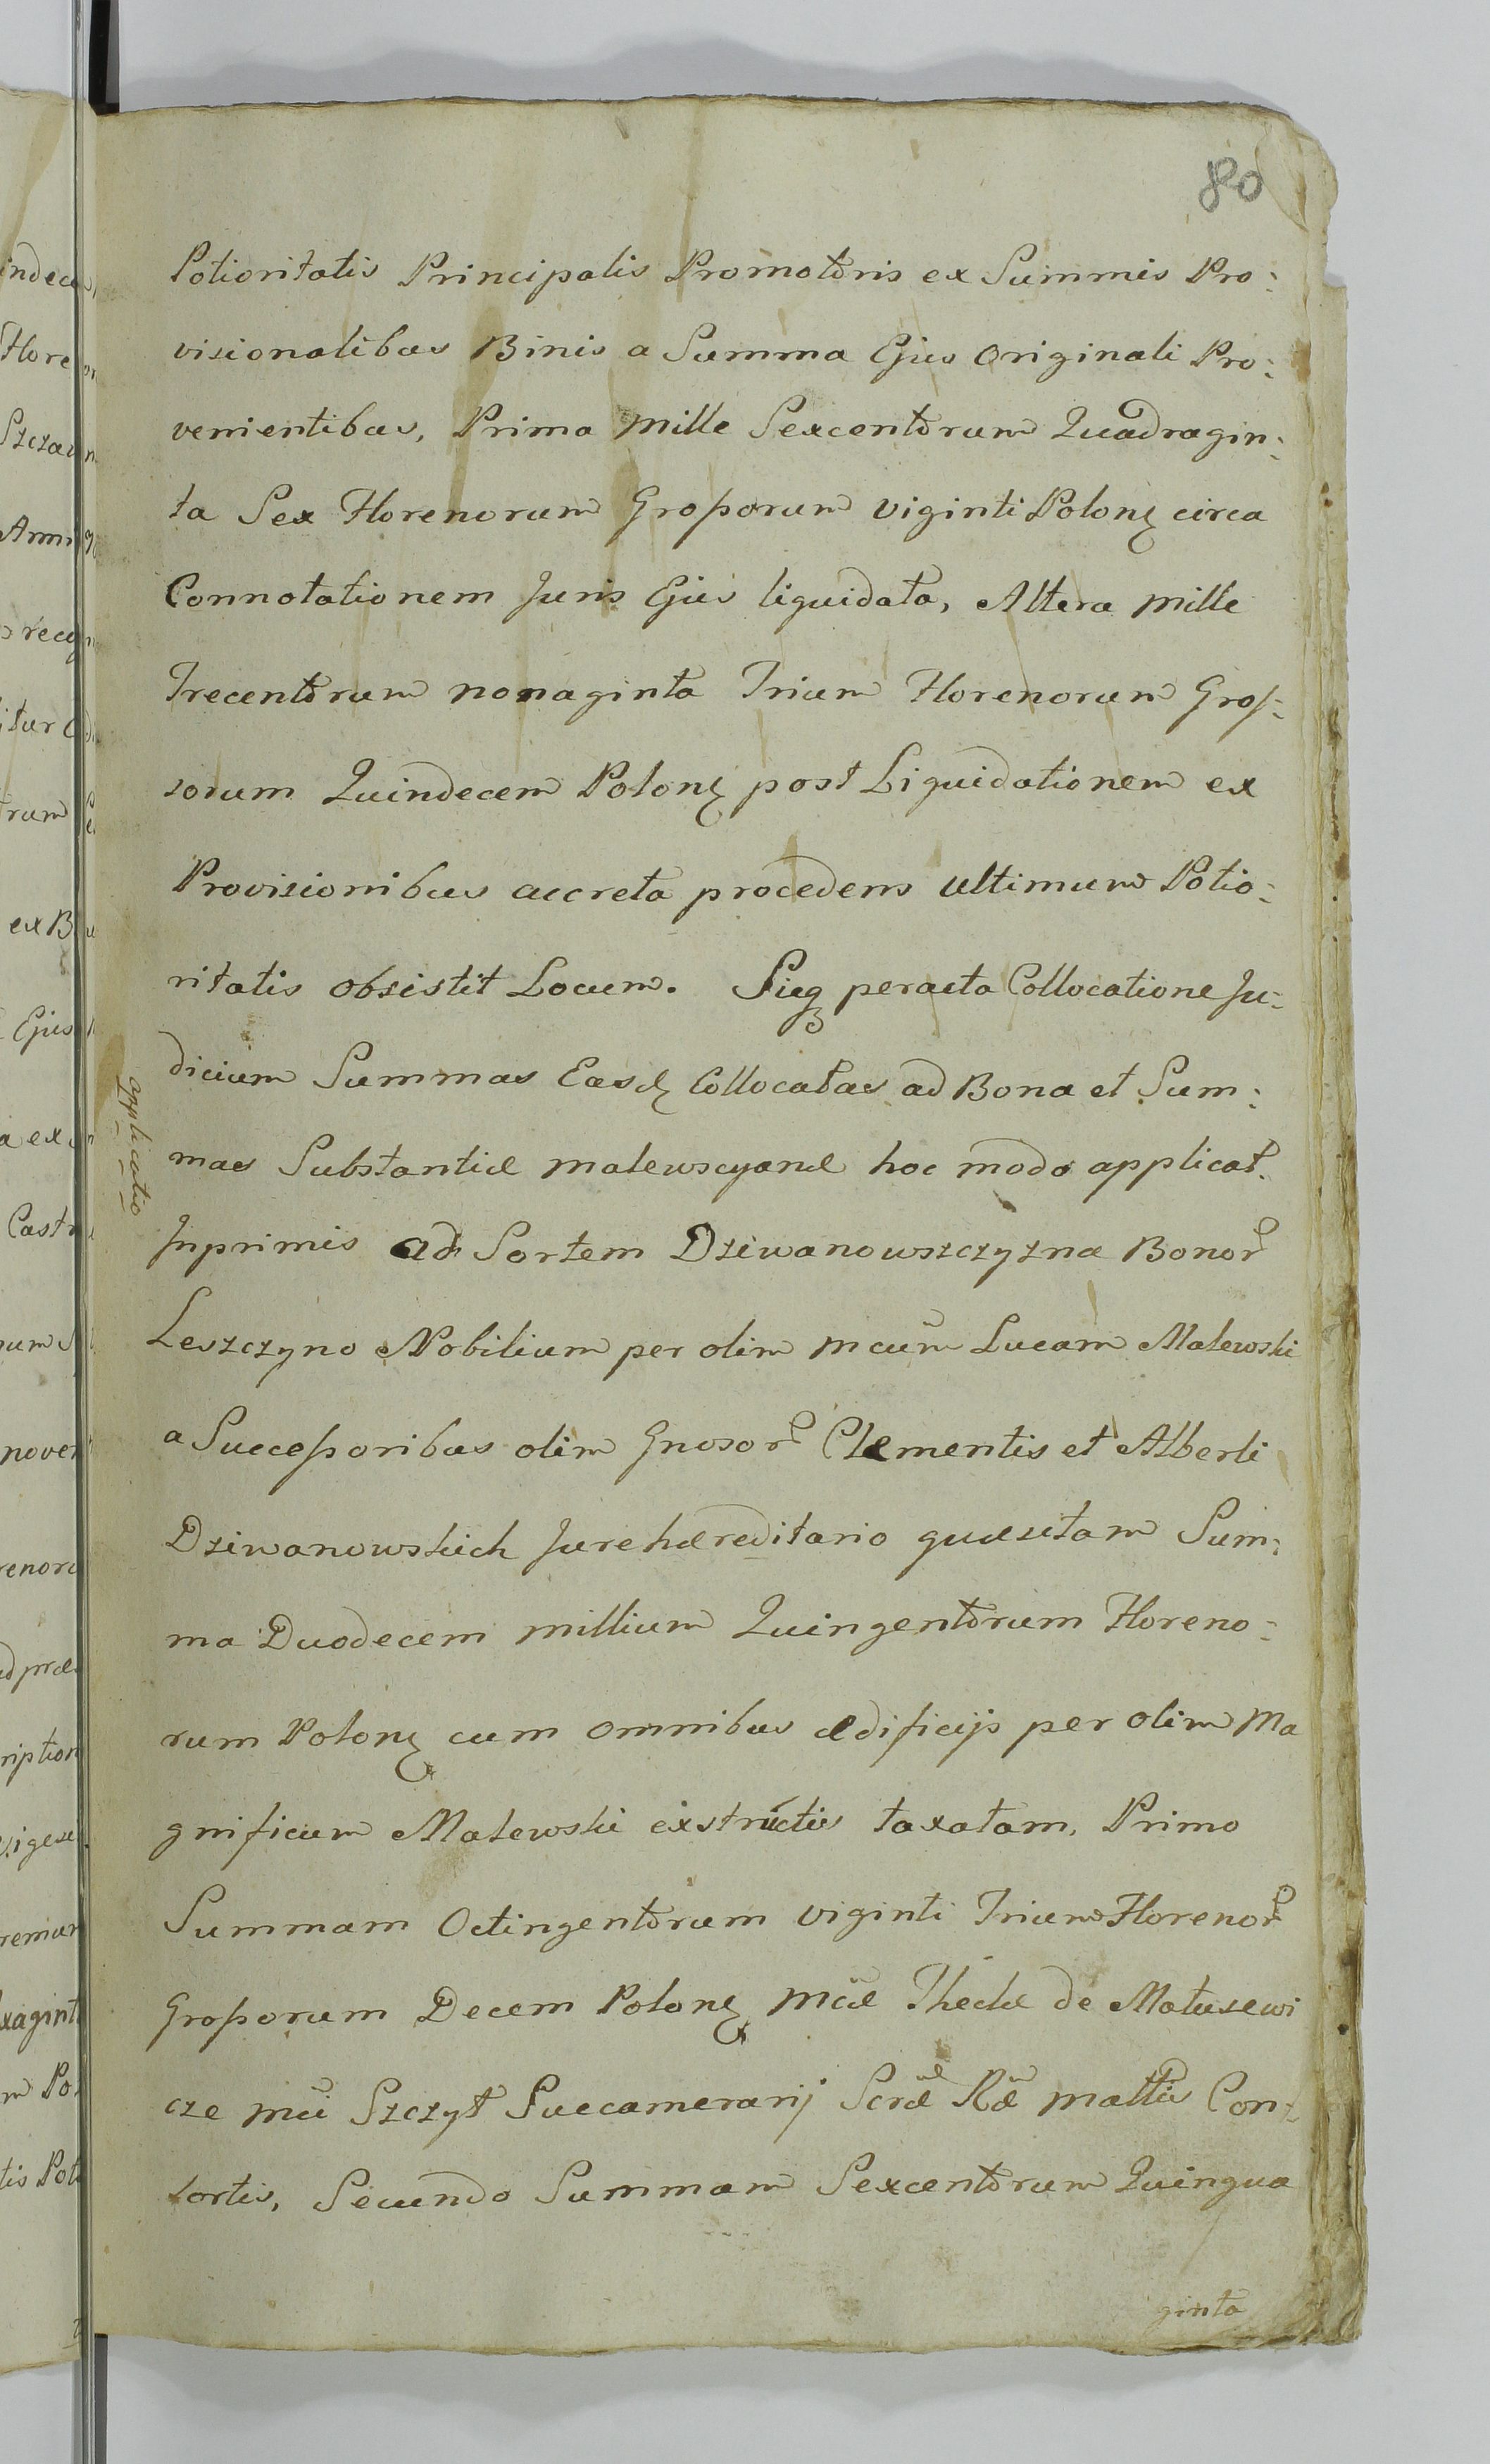 80
Potioritatis Principalis Promotoris ex Summis Pro:
visionalibus Binis a Summa Ejus Originali Pro:
venientibus, Prima Mille Sexcentorum Quadragin:
ta Sex Florenorum Grossorum viginti Polonę circa
Connotationem Juris Ejus liquidata, Altera Mille
Trecentorum nonaginta Trium Florenorum Gros:
sorum Quindecem Polonę post Liquidationem ex
Provisionibus accreta procedens ultimum Potio:
ritatis obsistit Locum. Sicq peracta Collocatione Ju:
dicium Summas Easdę Collocatas ad Bona et Sum:
applicatio
mas Substantiæ malewscyanæ hoc modo applicat.
Inprimis ad Sortem Dziwanowszczyzna Bonor
Leszczyno Nobilium per olim Mcum Lucam Malewski
a Successoribus olim Gnosor Clementis et Alberti
Dziwanowskich Jure hæreditario quæsitam Sum:
ma Duodecem millium Quingentorum Floreno:
rum Polonę cum omnibus ædificijs per olim Ma
gnificum Malewski exstructis taxatam, Primo
Summam Octingentorum viginti Trium Florenor
Grossorum Decem Polonę Mcæ Theclæ de Matusewi
cze Mci Szczyt Succamerarij Scræ Ræ Mattis Con:
sortis, Secundo Summam Sexcentorum Quinqua
ginta